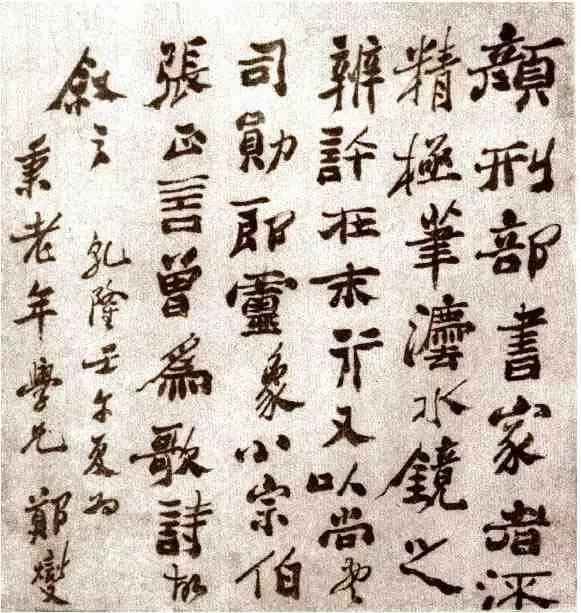 顏刑部書家者流
精極筆灋水鏡之
辨許在末行又以尚書
司勛郎靈象小宗伯
張正言曾爲歌詩故
敘之 乾隆壬午夏爲
秉老年學兄 鄭燮